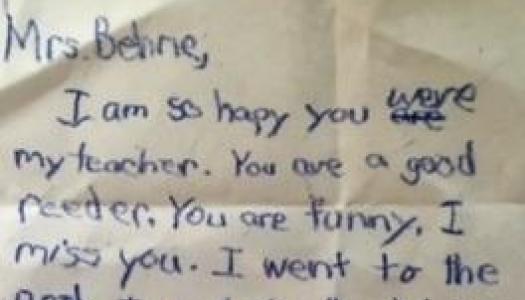 Mrs. Behne,
I am so hapy you were are
my teacher. You are a good
reeder. You are funny. I
miss you. I went to the